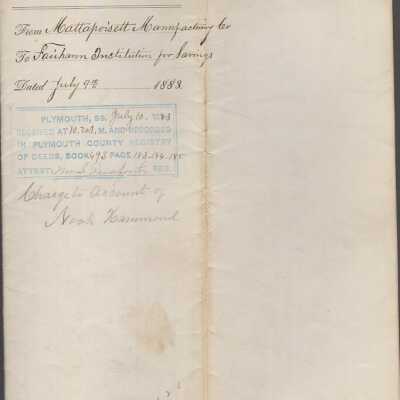 From Mattapoisett Manufacturing Co
To Fairhaven Institution for Savings
Dated July 9th 1883.
PLYMOUTH, SS. July 10. 1883
RECEIVED AT M. AND RECORDED
IN PLYMOUTH COUNTY REGISTRY
OF DEEDS, BOOK 493 PAGE 183-184-185
ATTEST, REG.
Charge to Account of
Noah Hammond